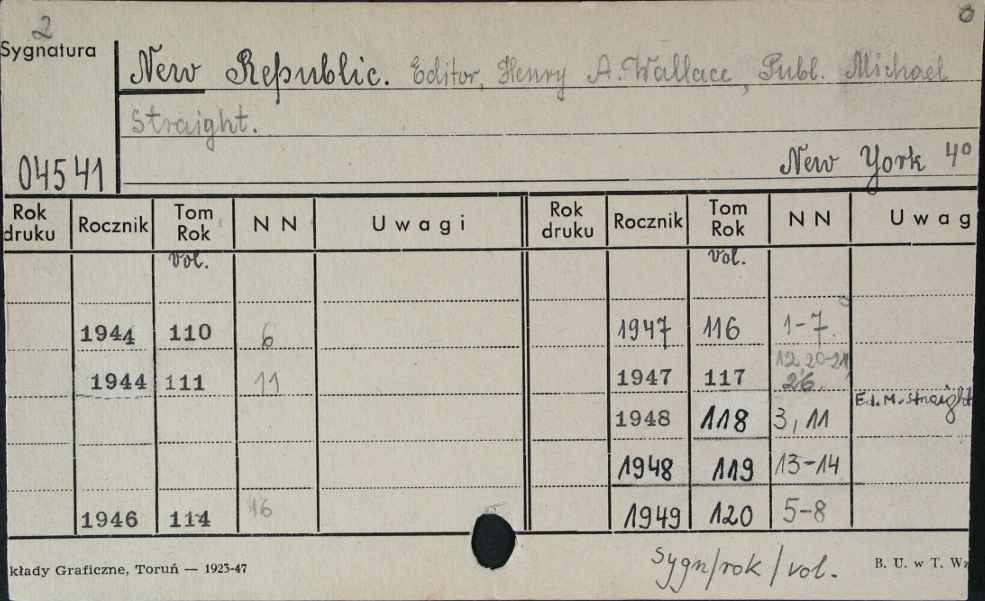 2
8
Sygnatura
New Republic. Editor, Henry A. Wallace, Publ. Michael
Straight.
04541
New York 4º
Rok druku Rocznik Tom Rok N N Uwagi Rok druku Rocznik Tom Rok N N Uwag
vol. vol.
1944 110 6 1947 116 1-7.
1944 111 11 1947 117 12, 20-21, 26
1948 118 3, 11 Ed. M. Straight
1948 119 13-14
1946 114 16 1949 120 5-8
kłady Graficzne, Toruń — 1923-47
sygn/rok/vol.
B. U. w T. Wz